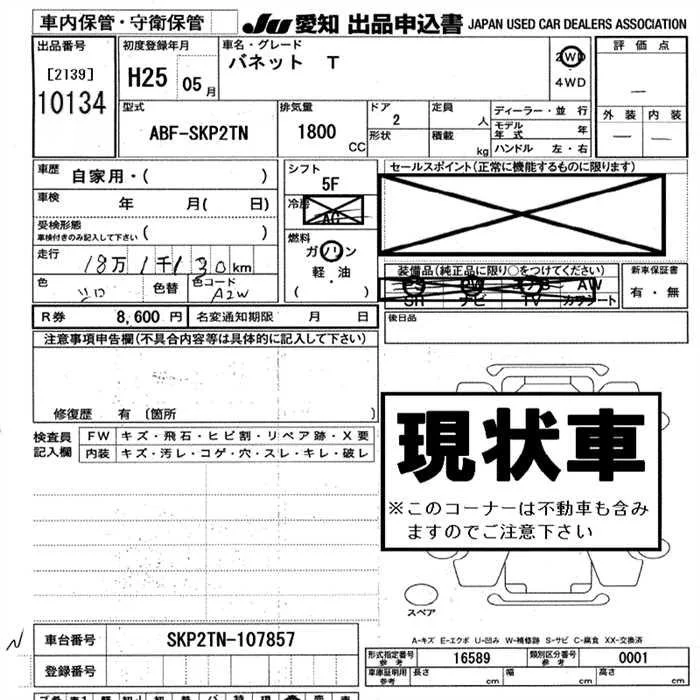 車内保管・守衛保管
JU 愛知 出品申込書 JAPAN USED CAR DEALERS ASSOCIATION
出品番号
[2139]
10134
初度登録年月
H25 05月
車名・グレード
バネット T
2WD
4WD
評価点
外装 内装
型式
ABF-SKP2TN
排気量
1800
CC
ドア
2
形状
定員
人
積載
kg
ディーラー・並行
モデル年式 年
ハンドル 左・右
車歴
自家用・( )
車検
年 月( 日)
受検形態
車検付きのみ記入して下さい ( )
走行
18万1千130km
色
シロ
色替
色コード
A2W
シフト
5F
冷房
AC
燃料
ガソリン
軽・油
( )
セールスポイント(正常に機能するものに限ります)
装備品(純正品に限り○をつけてください)
PS PW エアB AW
SR ナビ TV カワシート
新車保証書
有・無
後日品
R券 8,600円 名変通知期限 月 日
注意事項申告欄(不具合内容等は具体的に記入して下さい)
修復歴 有 〔箇所
検査員
記入欄
FW キズ・飛石・ヒビ割・リペア跡・X要
内装 キズ・汚レ・コゲ・穴・スレ・キレ・破レ
現状車
※このコーナーは不動車も含み
ますのでご注意下さい
スペア
A-キズ E-エクボ U-凹み W-補修跡 S-サビ C-腐食 XX-交換済
車台番号 SKP2TN-107857
登録番号
形式指定番号
参考
16589
類別区分番号
参考
0001
車庫証明用
参考
長さ cm 幅 cm 高さ cm